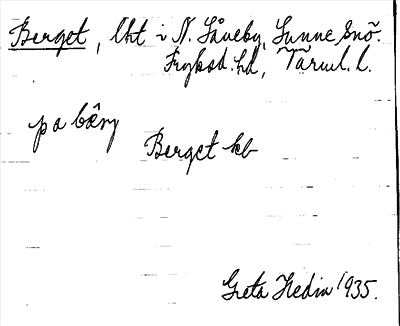 Berget, lht i N. Låneby, Sunne Snö.
Fryksd. hd, Värml. l.
pa bæ̂ry
Berget kb
Greta Hedin 1935.